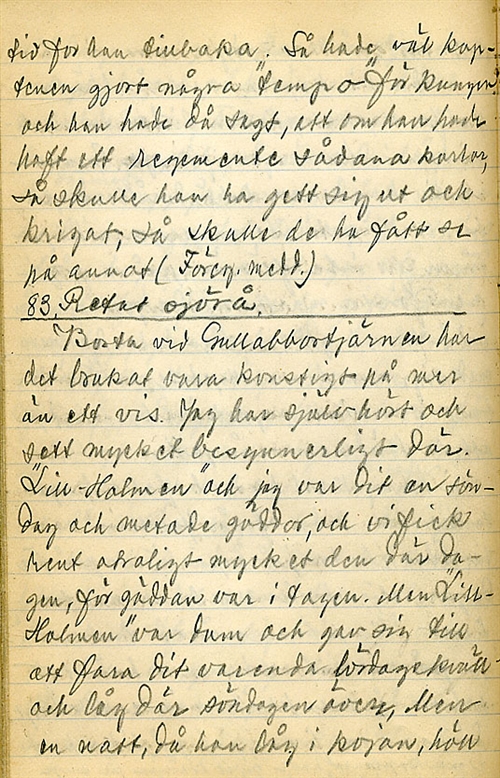 tid for han tiubaka. Så hade väl kap-
tenen gjort några "tempo" för kungen
och han hade då sagt, att om han hade
haft ett regemente sådana karlar,
så skulle han ha gett sig ut och
krigat, så skulle de ha fått se
på annat (Föreg. medd.)
83. Retat sjörå.
Borta vid Gullabbortjärnen har
det brukat vara konstigt på mer
än ett vis. Jag har själv hört och
sett mycket besynnerligt där.
"Lill-Holmen" och jag var dit en sön-
dag och metade gäddor, och vi fick
rent otroligt mycket den där da-
gen, för gäddan var i tagen. Men "Lill-
Holmen" var dum och gav sig till
att fara dit varenda lördagskväll
och låg där söndagen över. Men
en natt, då han låg i kojan, höll